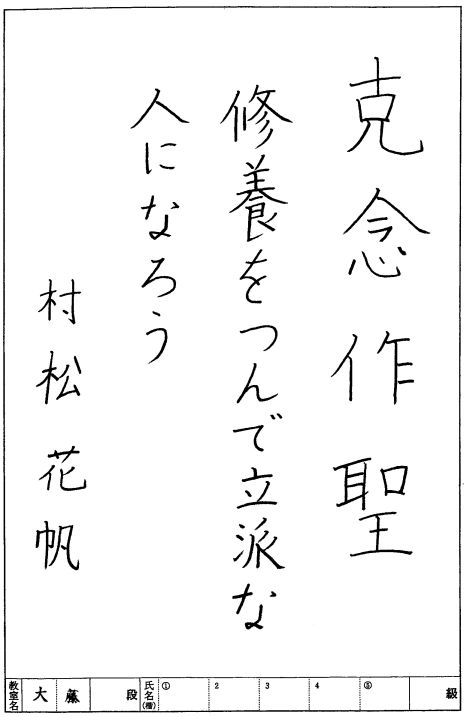 克念作聖
修養をつんで立派な
人になろう
村松花帆
教室名 大藤 段 氏名(楷) ① 2 3 4 ⑤ 級